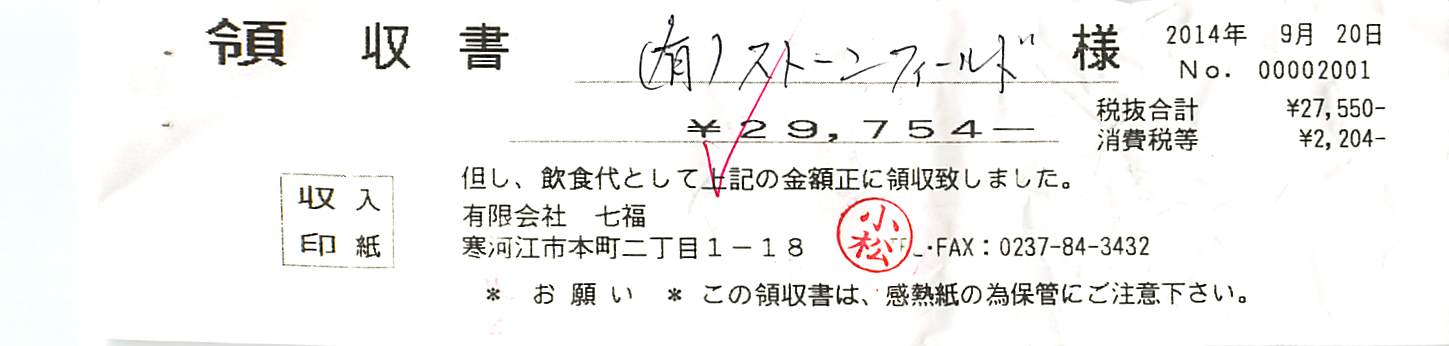 領 収 書 (有)ストーンフィールド 様 2014年 9月 20日
No. 00002001
税抜合計 ¥27,550-
¥29,754— 消費税等 ¥2,204-
但し、飲食代として上記の金額正に領収致しました。
収入
印紙
有限会社 七福
小松
寒河江市本町二丁目1-18 TEL・FAX:0237-84-3432
* お 願 い * この領収書は、感熱紙の為保管にご注意下さい。